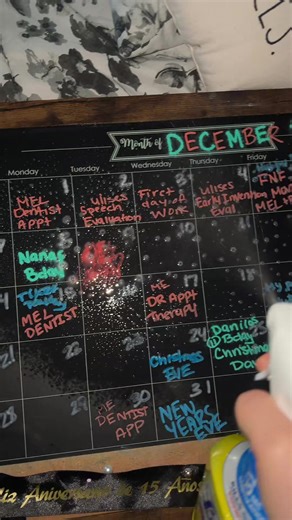 Month of DECEMBER
Monday Tuesday Wednesday Thursday Friday
1 2 3 4
MEL
Dentist
APPT
Ulises
Speech
Evaluation
First
day of
Work
Ulises
Early Intervention
Eval
FNF
MEL
7
Nanas
Bday
10
MEL
DENTIST
ME
DR APPt
Therapy
17
18
21
22
23
24
Christmas
EVE
Daniels
Bday
Christmas
Day
28
29
30
ME
DENTIST
APP
31
NEW
YEARS
EVE
Aniversario de 15 Años